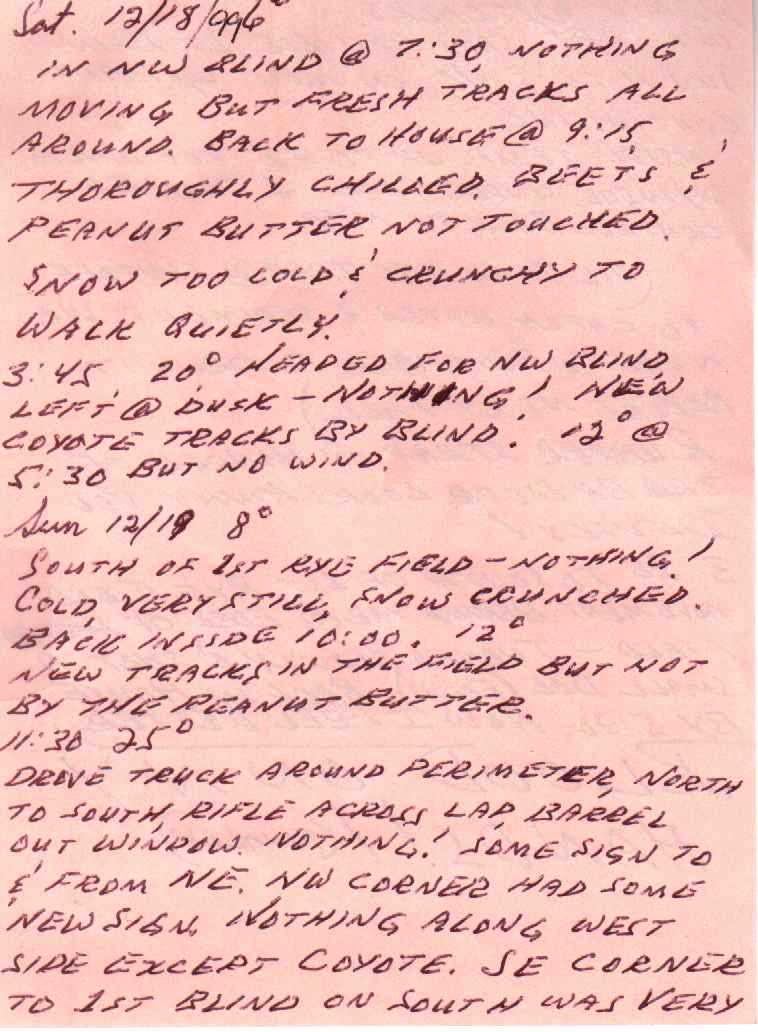 Sat. 12/18/99 6°
IN NW BLIND @ 7:30, NOTHING
MOVING BUT FRESH TRACKS ALL
AROUND. BACK TO HOUSE @ 9:15,
THOROUGHLY CHILLED. BEETS &
PEANUT BUTTER NOT TOUCHED.
SNOW TOO COLD & CRUNCHY TO
WALK QUIETLY.
3:45, 20° HEADED FOR NW BLIND,
LEFT @ DUSK - NOTHING! NEW
COYOTE TRACKS BY BLIND. 12° @
5:30 BUT NO WIND.
Sun 12/19 8°
SOUTH OF 1ST RYE FIELD - NOTHING!
COLD, VERY STILL, SNOW CRUNCHED.
BACK INSIDE 10:00. 12°
NEW TRACKS IN THE FIELD BUT NOT
BY THE PEANUT BUTTER.
11:30 25°
DROVE TRUCK AROUND PERIMETER, NORTH
TO SOUTH, RIFLE ACROSS LAP, BARREL
OUT WINDOW. NOTHING! SOME SIGN TO
& FROM NE. NW CORNER HAD SOME
NEW SIGN, NOTHING ALONG WEST
SIDE EXCEPT COYOTE. SE CORNER
TO 1ST BLIND ON SOUTH WAS VERY